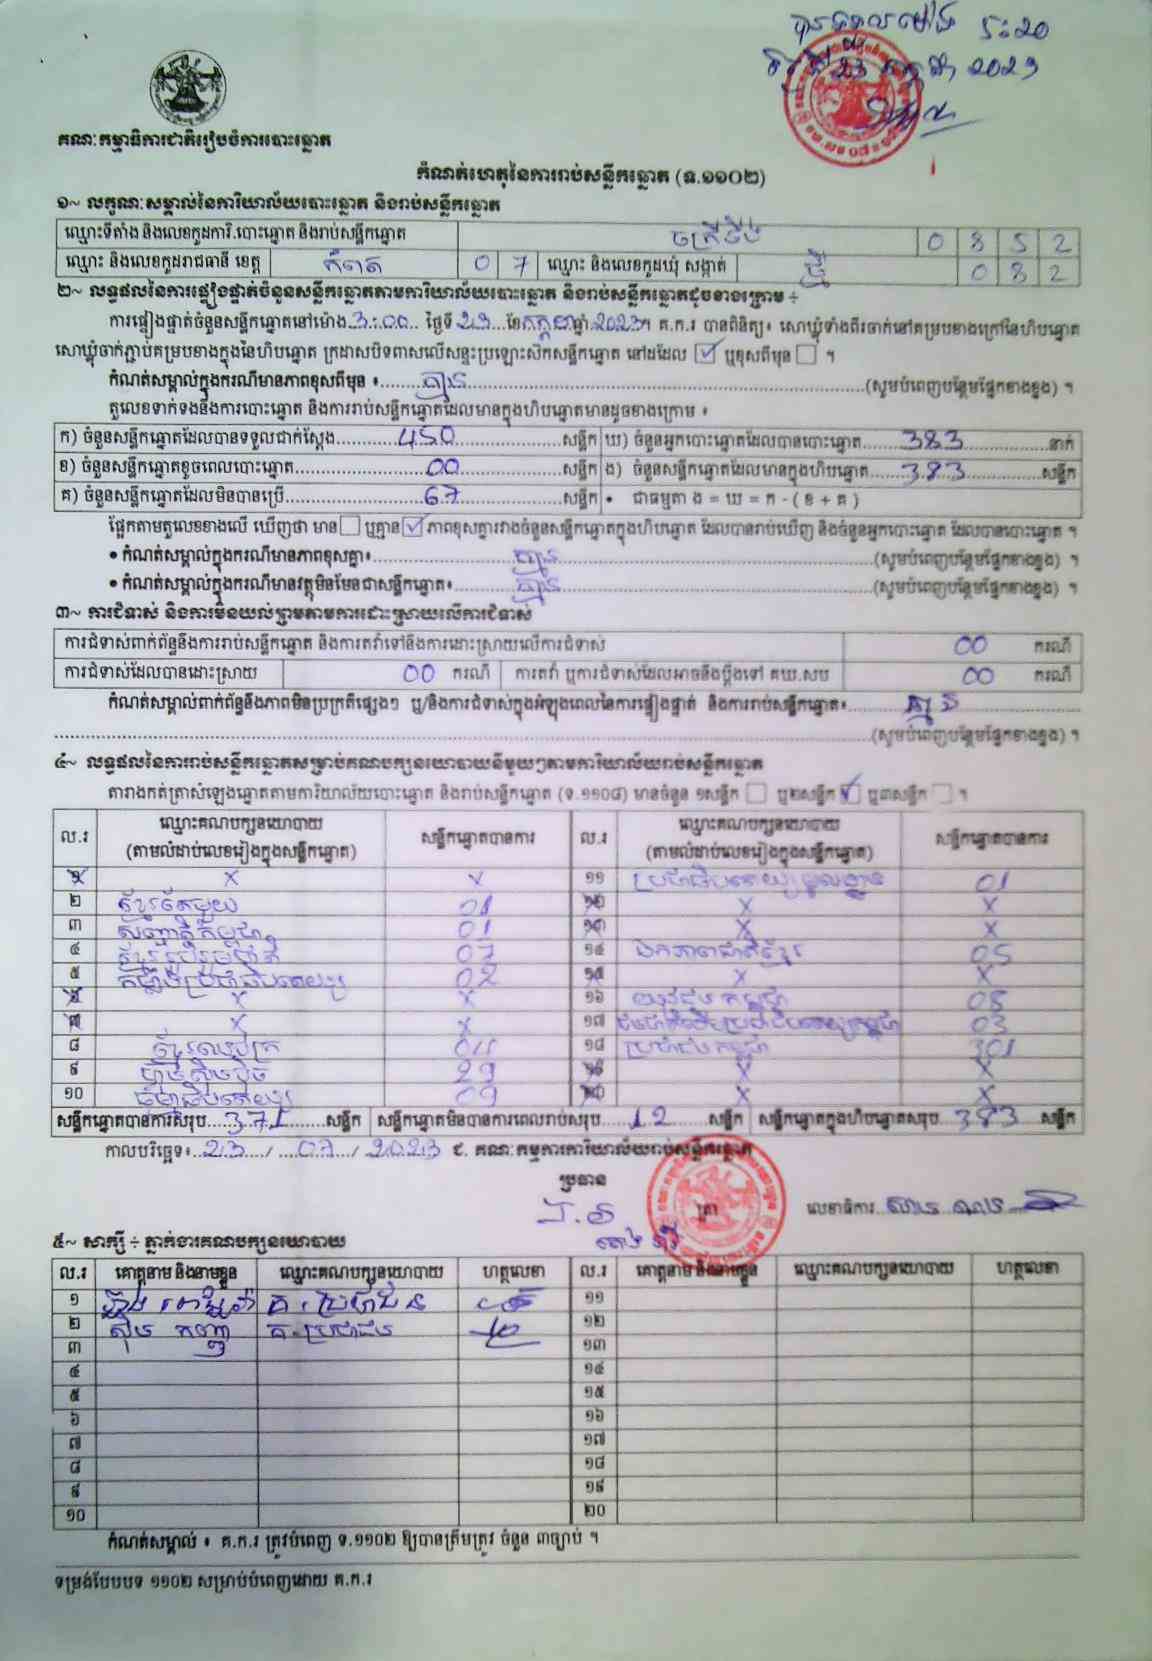 គណៈកម្មាធិការជាតិរៀបចំការបោះឆ្នោត
5:20
23 2023
កំណត់ហេតុនៃការរាប់សន្លឹកឆ្នោត (ទ.១១០២)
១~ លក្ខណៈសម្គាល់នៃការិយាល័យបោះឆ្នោត និងរាប់សន្លឹកឆ្នោត
ឈ្មោះទីតាំង និងលេខកូដការិ.បោះឆ្នោត និងរាប់សន្លឹកឆ្នោត 0 8 5 2
ឈ្មោះ និងលេខកូដរាជធានី ខេត្ត កំពត 0 7 ឈ្មោះ និងលេខកូដឃុំ សង្កាត់ ថ្មី 0 8 2
២~ លទ្ធផលនៃការផ្ទៀងផ្ទាត់ចំនួនសន្លឹកឆ្នោតតាមការិយាល័យបោះឆ្នោត និងរាប់សន្លឹកឆ្នោតដូចខាងក្រោម ÷
ការផ្ទៀងផ្ទាត់ចំនួនសន្លឹកឆ្នោតនៅម៉ោង 3:00 ថ្ងៃទី 23 ខែកក្កដា ឆ្នាំ 2023។ គ.ក.រ បានពិនិត្យ៖ សោឃ្លុំទាំងពីរចាក់នៅគម្របខាងក្រៅនៃហិបឆ្នោត
សោឃ្លុំចាក់ភ្ជាប់គម្របខាងក្នុងនៃហិបឆ្នោត ក្រដាសបិទពាសលើសន្ទះប្រឡោះសឹកសន្លឹកឆ្នោត នៅដដែល ☑ ឬខុសពីមុន ☐ ។
កំណត់សម្គាល់ក្នុងករណីមានភាពខុសពីមុន ៖ គ្មាន (សូមបំពេញបន្ថែមផ្នែកខាងខ្នង) ។
តួលេខទាក់ទងនឹងការបោះឆ្នោត និងការរាប់សន្លឹកឆ្នោតដែលមានក្នុងហិបឆ្នោតមានដូចខាងក្រោម ៖
ក) ចំនួនសន្លឹកឆ្នោតដែលបានទទួលជាក់ស្តែង 450 សន្លឹក ឃ) ចំនួនអ្នកបោះឆ្នោតដែលបានបោះឆ្នោត 383 នាក់
ខ) ចំនួនសន្លឹកឆ្នោតខូចពេលបោះឆ្នោត 00 សន្លឹក ង) ចំនួនសន្លឹកឆ្នោតដែលមានក្នុងហិបឆ្នោត 383 សន្លឹក
គ) ចំនួនសន្លឹកឆ្នោតដែលមិនបានប្រើ 67 សន្លឹក • ជាធម្មតា ង = ឃ = ក - ( ខ + គ )
ផ្អែកតាមតួលេខខាងលើ ឃើញថា មាន ☐ ឬគ្មាន ☑ ភាពខុសគ្នារវាងចំនួនសន្លឹកឆ្នោតក្នុងហិបឆ្នោត ដែលបានរាប់ឃើញ និងចំនួនអ្នកបោះឆ្នោត ដែលបានបោះឆ្នោត ។
• កំណត់សម្គាល់ក្នុងករណីមានភាពខុសគ្នា៖ គ្មាន (សូមបំពេញបន្ថែមផ្នែកខាងខ្នង) ។
• កំណត់សម្គាល់ក្នុងករណីមានវត្ថុមិនមែនជាសន្លឹកឆ្នោត៖ គ្មាន (សូមបំពេញបន្ថែមផ្នែកខាងខ្នង) ។
៣~ ការជំទាស់ និងការមិនយល់ព្រមតាមការដោះស្រាយលើការជំទាស់
ការជំទាស់ពាក់ព័ន្ធនឹងការរាប់សន្លឹកឆ្នោត និងការតវ៉ាទៅនឹងការដោះស្រាយលើការជំទាស់ 00 ករណី
ការជំទាស់ដែលបានដោះស្រាយ 00 ករណី ការតវ៉ា ឬការជំទាស់ដែលអាចនឹងប្តឹងទៅ គឃ.សប 00 ករណី
កំណត់សម្គាល់ពាក់ព័ន្ធនឹងភាពមិនប្រក្រតីផ្សេងៗ ឬ/និងការជំទាស់ក្នុងអំឡុងពេលនៃការផ្ទៀងផ្ទាត់ និងការរាប់សន្លឹកឆ្នោត៖ គ្មាន
(សូមបំពេញបន្ថែមផ្នែកខាងខ្នង) ។
៤~ លទ្ធផលនៃការរាប់សន្លឹកឆ្នោតសម្រាប់គណបក្សនយោបាយនីមួយៗតាមការិយាល័យរាប់សន្លឹកឆ្នោត
តារាងកត់ត្រាសំឡេងឆ្នោតតាមការិយាល័យបោះឆ្នោត និងរាប់សន្លឹកឆ្នោត (ទ.១១០៨) មានចំនួន ១សន្លឹក ☐ ឬ២សន្លឹក ☑ ឬ៣សន្លឹក ☐ ។
ល.រ ឈ្មោះគណបក្សនយោបាយ (តាមលំដាប់លេខរៀងក្នុងសន្លឹកឆ្នោត) សន្លឹកឆ្នោតបានការ ល.រ ឈ្មោះគណបក្សនយោបាយ (តាមលំដាប់លេខរៀងក្នុងសន្លឹកឆ្នោត) សន្លឹកឆ្នោតបានការ
១ x x ១១ ប្រជាធិបតេយ្យមូលដ្ឋាន 01
២ ខ្មែរតែមួយ 01 ១២ x x
៣ សញ្ជាតិកម្ពុជា 01 ១៣ x x
៤ ខ្មែររួបរួមជាតិ 07 ១៤ ឯកភាពជាតិខ្មែរ 05
៥ កម្លាំងប្រជាធិបតេយ្យ 02 ១៥ x x
៦ x x ១៦ យុវជនកម្ពុជា 05
៧ x x ១៧ ប្រជាធិបតេយ្យកម្ពុជា 03
៨ ខ្មែរឈប់ក្រ ១៨ ប្រជាជនកម្ពុជា 301
៩ ហ្វ៊ុនស៊ិនប៉ិច 29 ១៩ x x
១០ ធម្មាធិបតេយ្យ 09 ២០ x x
សន្លឹកឆ្នោតបានការសរុប 371 សន្លឹក សន្លឹកឆ្នោតមិនបានការពេលរាប់សរុប 12 សន្លឹក សន្លឹកឆ្នោតក្នុងហិបឆ្នោតសរុប 383 សន្លឹក
កាលបរិច្ឆេទ៖ 23 / 07 / 2023 ជ. គណៈកម្មការការិយាល័យរាប់សន្លឹកឆ្នោត
ប្រធាន
ត្រា លេខាធិការ
៥~ សាក្សី ÷ ភ្នាក់ងារគណបក្សនយោបាយ
ល.រ គោត្តនាម និងនាមខ្លួន ឈ្មោះគណបក្សនយោបាយ ហត្ថលេខា ល.រ គោត្តនាម និងនាមខ្លួន ឈ្មោះគណបក្សនយោបាយ ហត្ថលេខា
១ គ.ប្រជាជន ១១
២ ស៊ឹម កញ្ញា គ.ប្រជាជន ១២
៣ ១៣
៤ ១៤
៥ ១៥
៦ ១៦
៧ ១៧
៨ ១៨
៩ ១៩
១០ ២០
កំណត់សម្គាល់ ៖ គ.ក.រ ត្រូវបំពេញ ទ.១១០២ ឱ្យបានត្រឹមត្រូវ ចំនួន ៣ច្បាប់ ។
ទម្រង់បែបបទ ១១០២ សម្រាប់បំពេញដោយ គ.ក.រ